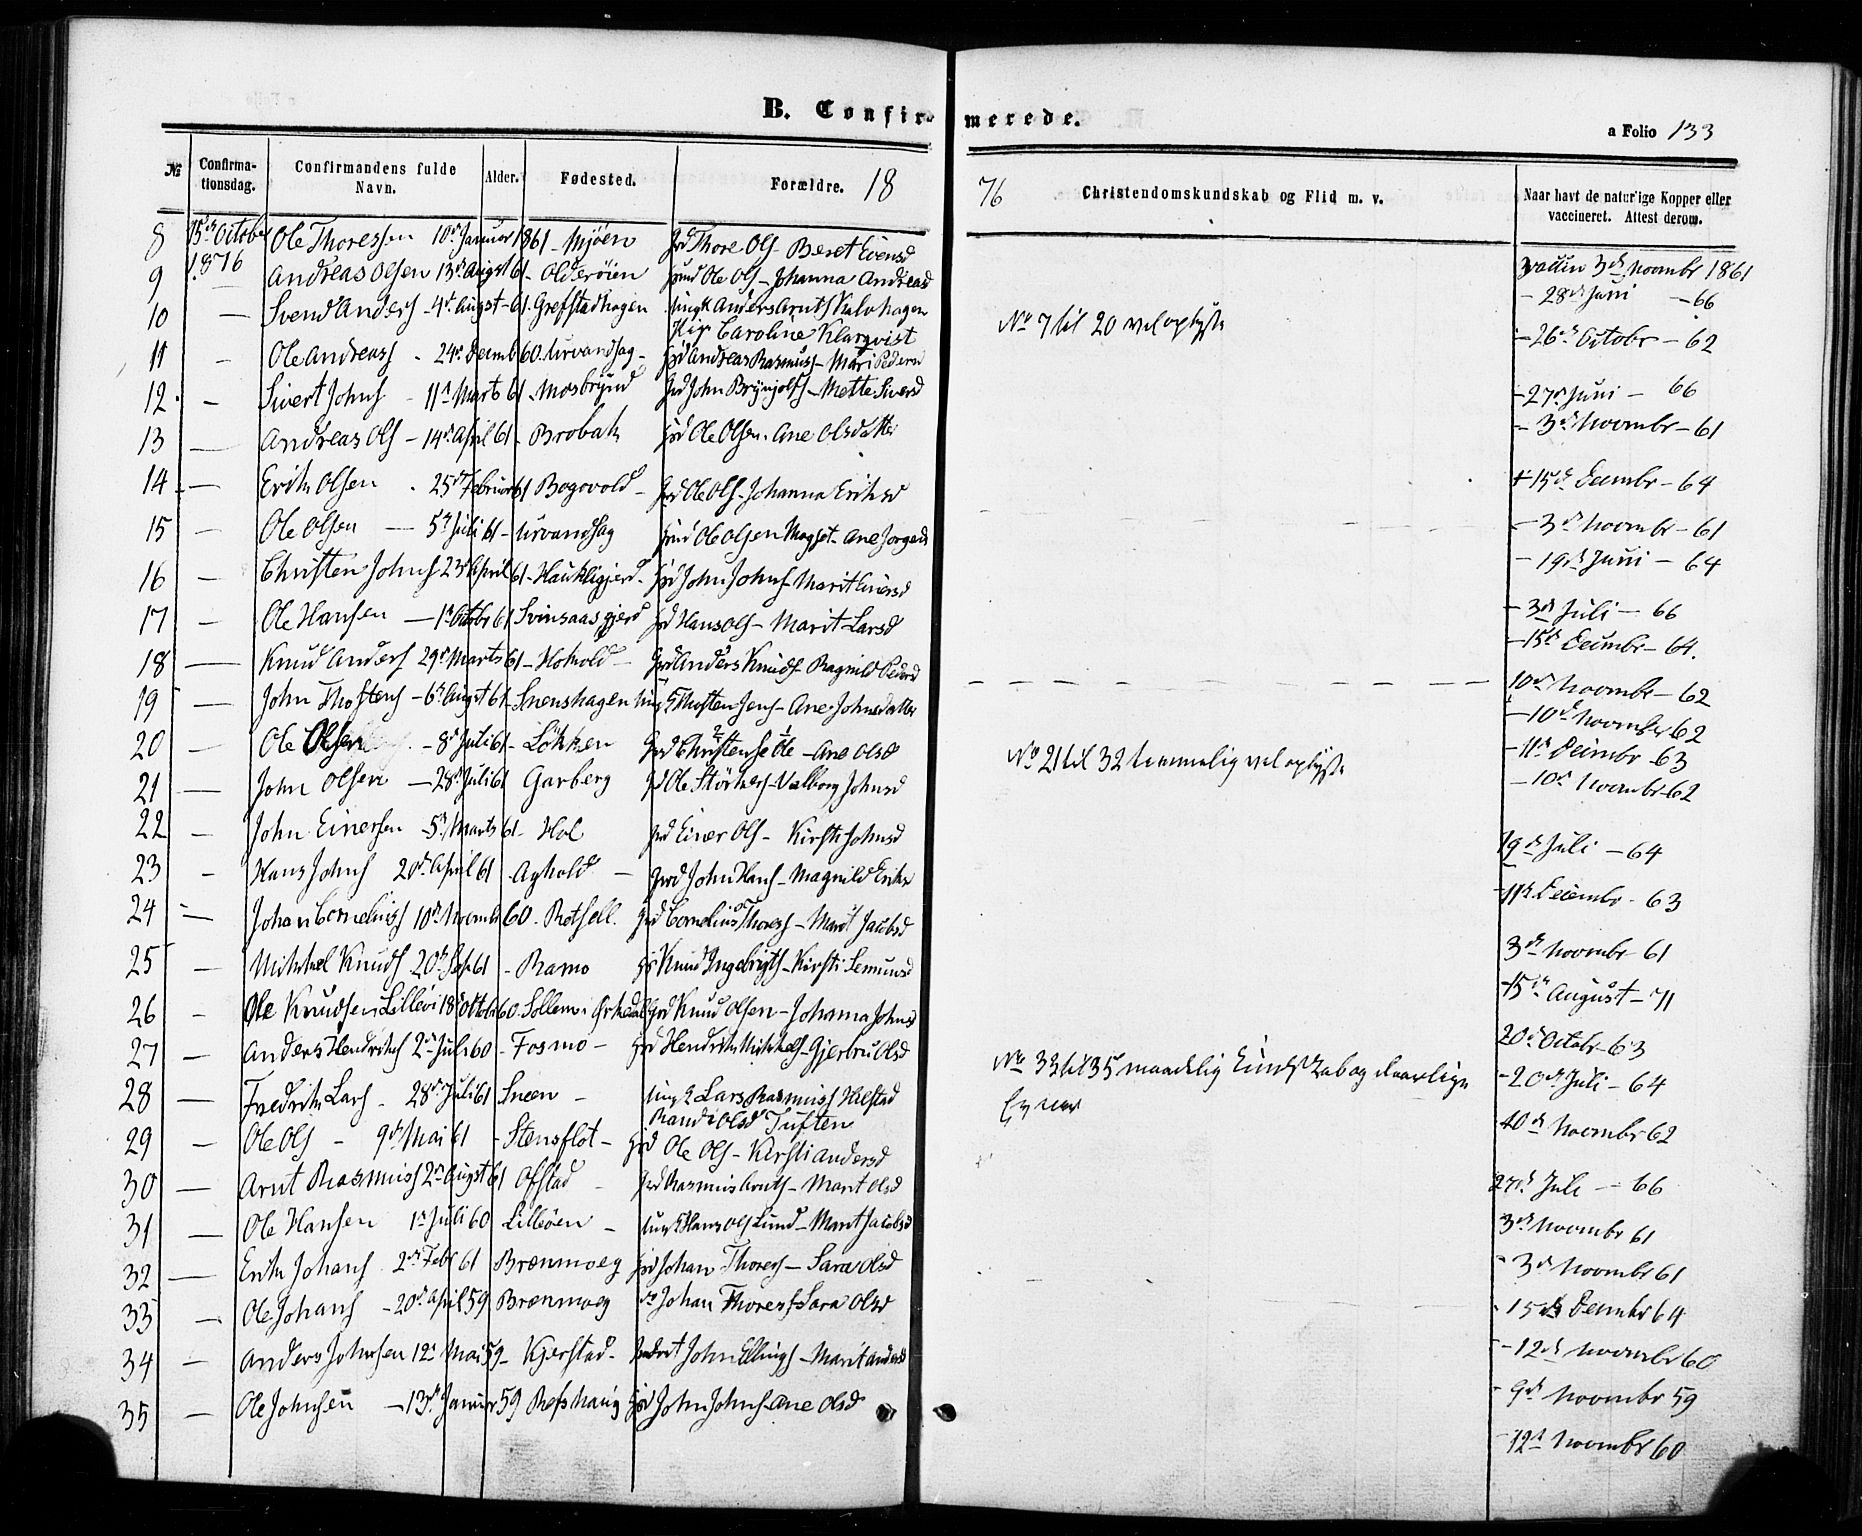 B. Confirmerede.
a Folio 133
№ Confirmationsdag. Confirmandens fulde Navn. Alder. Fødested. Forældre. 18
76 Christendomskundskab og Flid m. v. Naar havt de naturlige Kopper eller vaccineret. Attest derom.
8 15de October 1876 Ole Thoressen 10de Januar 1861 - Mjöen Thore Ols - Beret Eversd
9 Andreas Olsen 13de August 61 - Olderöien Ole Ols - Johanna Andreasd
10 — Svend Anders - 4de August - 61 - Grefstadhagen Ungk Anders Arnts Kalvhagen
Pige Caroline Klarqvist
11 - Ole Andreass - 24de Decemb 60 Urvandsag - Andreas Rasmuss - Mari Peders
12 - Sivert Johns - 11te Marts 61 - Mosbrynd John Brynjolfs - Mette Siversd
13 — Andreas Ols - 14de April 61 - Brobak Ole Olsen - Ane Olsdatter
14 — Erik Olsen - 25de Februar 61 Bogovold - Ole Ols - Johanna Eriksd
15 - Ole Olsen — 5te Juli 61 - Urvandsag Ole Olsen - Ane
16 - Christen Johns 23de April 61 - Haukligjerd - John Johns - Marit Eversd
17 - Ole Hansen — 1ste Octbr 61 Svinsaasgjerd Hans Ols - Marit Larsd
18 — Knud Anders 29de Marts 61 - Hokold - Anders Knuds - Ragnild Pedersd
19 - John Thostens - 6te August 61 - Snenshagen Thosten Jens - Ane Johnsdatter
20 - Ole Olsen - 8de Juli 61 - Lökken Christense Ole - Ane Olsd
21 — John Olsen — 28de Juli 61 Garberg Ole Störkers - Valborg Johnsd
22 - John Einersen - 5te Marts 61 - Hol Einer Ols - Kirsti Johnsd
23 - Hans Johns 20de April 61 - Aghold — John Hans - Magnild Eriks
24 — Johan Cornelius 10de Novembr 60 - Rotsell. Cornelius Thoress - Marit Jacobsd
25 - Mikkel Knuds 20de Sept 61 - Ramo Knud Ingebrigts - Kirsti
26 - Ole Knudsen Lilleöi 18de Octobr 60 - Orkedal Knud Olsen - Johanna Johnsd
27 - Anders Hendriks 2den Juli 60 - Fosmo - Hendrik Mikkels - Gjerbru Olsd
28 - Fredrik Lars - 28de Juli 61 Sneen - Ungk Lars Rasmuss Halstad
Randi Olsd Tuften
29 - Ole Ols - 9de Mai 61 - Stensflot - Ole Ols - Kirsti Andersd
30 — Arnt Rasmuss 2den August 61 Ofstad - Rasmus Arnts - Marit Olsd
31 — Ole Hansen 1ste Juli 60 Lilleöen - Ungk Hans Ols Lund - Marit Jacobsd
32 — Erik Johans 2den Febr 61 Brænmoeg Johan Thoress - Sara Olsd
33 - Ole Johans - 20de April 59 Brænmoeg do Johan Thoress Sara Olsd
34 - Anders Johnsen 12te Mai 59 - Kjerstad - John Ellings - Marit Andersd
35 - Ole Johnsen - 13de Januar 59 Refshaug John Johns - Ane Olsd
No 7 til 20 vel oplyste
No 21 til 32 temmelig vel oplyste
No 33 til 35 maadelig Kundskab og daarlige
Evner
vaccin 3de Novembr 1861
- 28de Juni - 66
- 26de Octobr - 62
- 27de Juni - 66
- 3de Novembr - 61
- 15de Decembr - 64
- 3de Novembr - 61
- 19de Juni - 64
- 3de Juli - 66
- 15de Decembr - 64.
10de Novembr - 62
- 10de November 62
- 11te Decembr 63
- 10de Novembr 62
19de Juli - 64
- 11te Decembr - 63
3de Novembr 61
15de August - 71
20de Octobr 63
- 20de Juli - 64
10de Novembr 62
27de Juli - 66
3de Novembr 61
- 3de Novembr 61
- 15de Decembr 64
- 12te Novembr 60
- 9de Novembr 59
- 12te Novembr 60